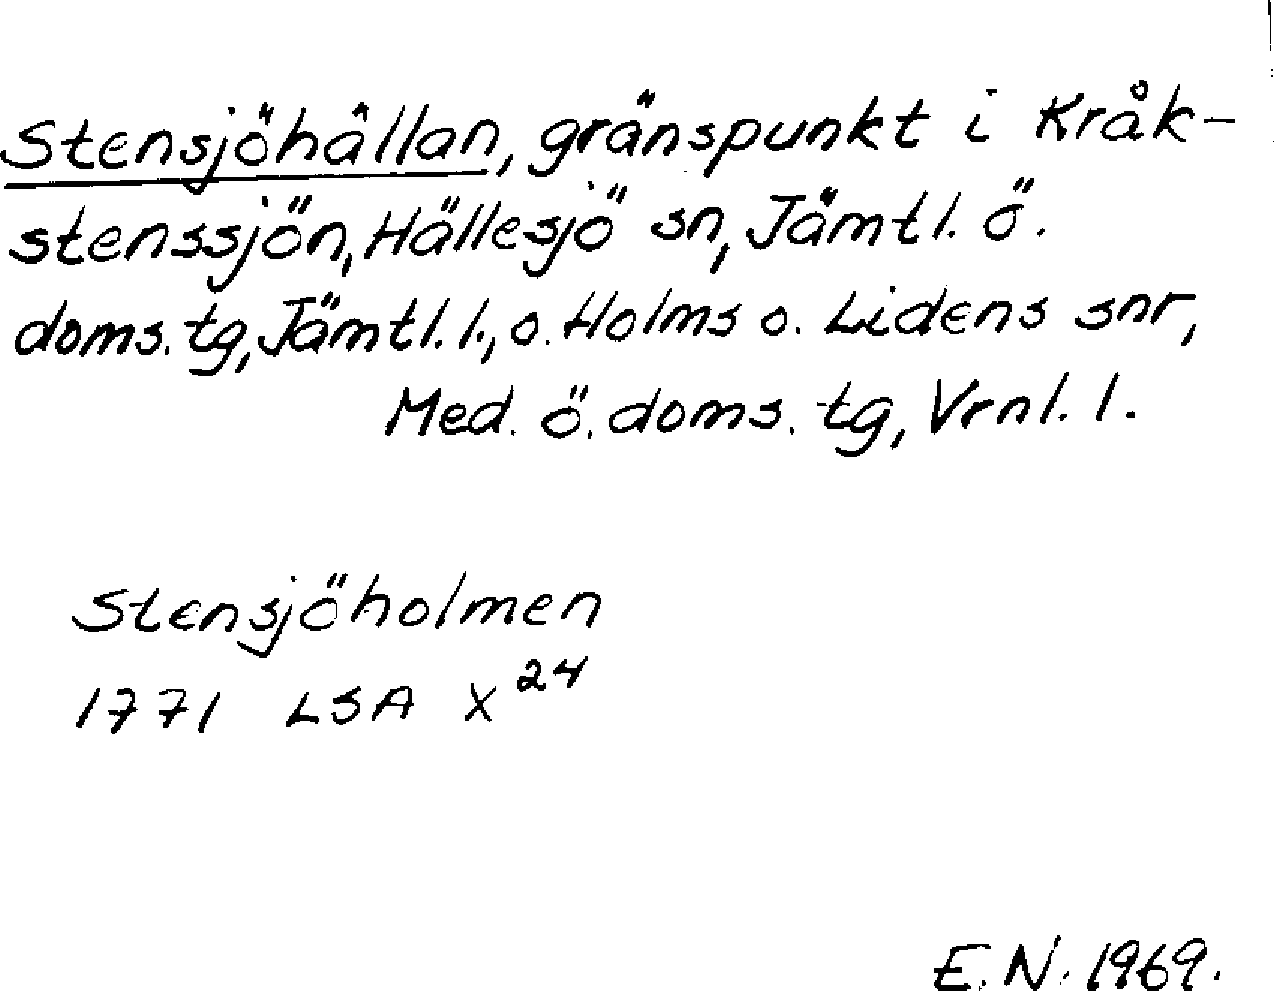 Stensjöhällan, gränspunkt i Kråk-
stenssjön, Hällesjö sn, Jämtl. ö.
doms. tg, Jämtl. l., o. Holms o. Lidens snr,
Med. ö. doms. tg, Vrnl. l.
Stensjöholmen
1771 LSA X²⁴
E. N. 1969.